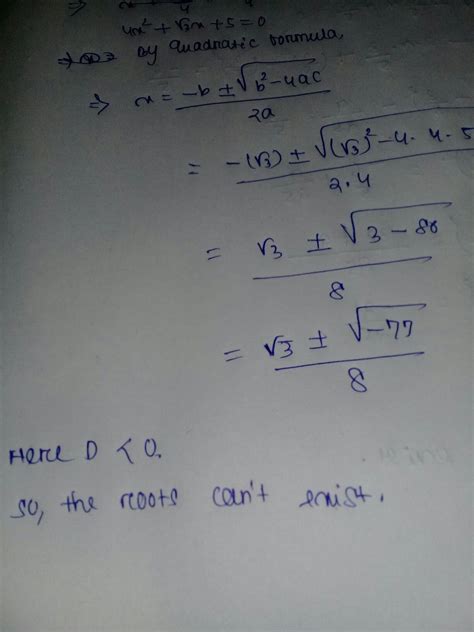 4x² + √3x + 5 = 0
by quadratic formula,
⇒ x = -b ± √b² - 4ac / 2a
= -(√3) ± √(√3)² - 4 · 4 · 5 / 2 · 4
= √3 ± √3 - 80 / 8
= √3 ± √-77 / 8
Here D < 0.
so, the roots can't exist.